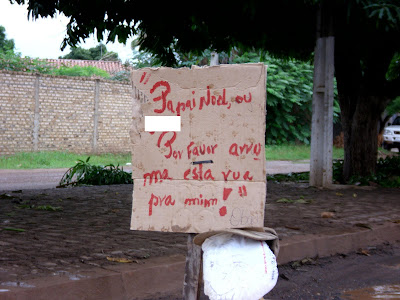 "Papai Noel, ou
Por Favor arru
ma esta rua
pra mim!"